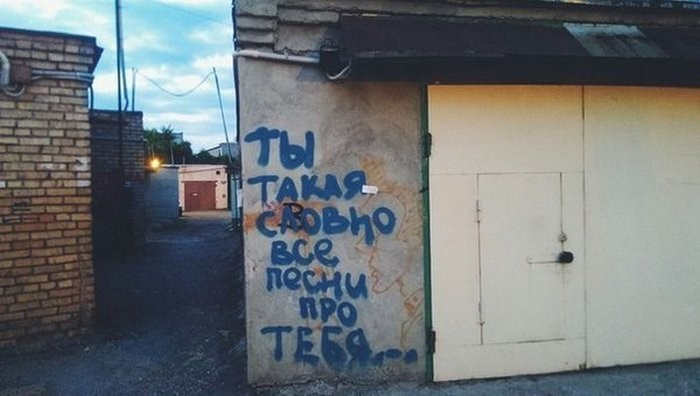 ты
такая
словно
все
песни
про
тебя...